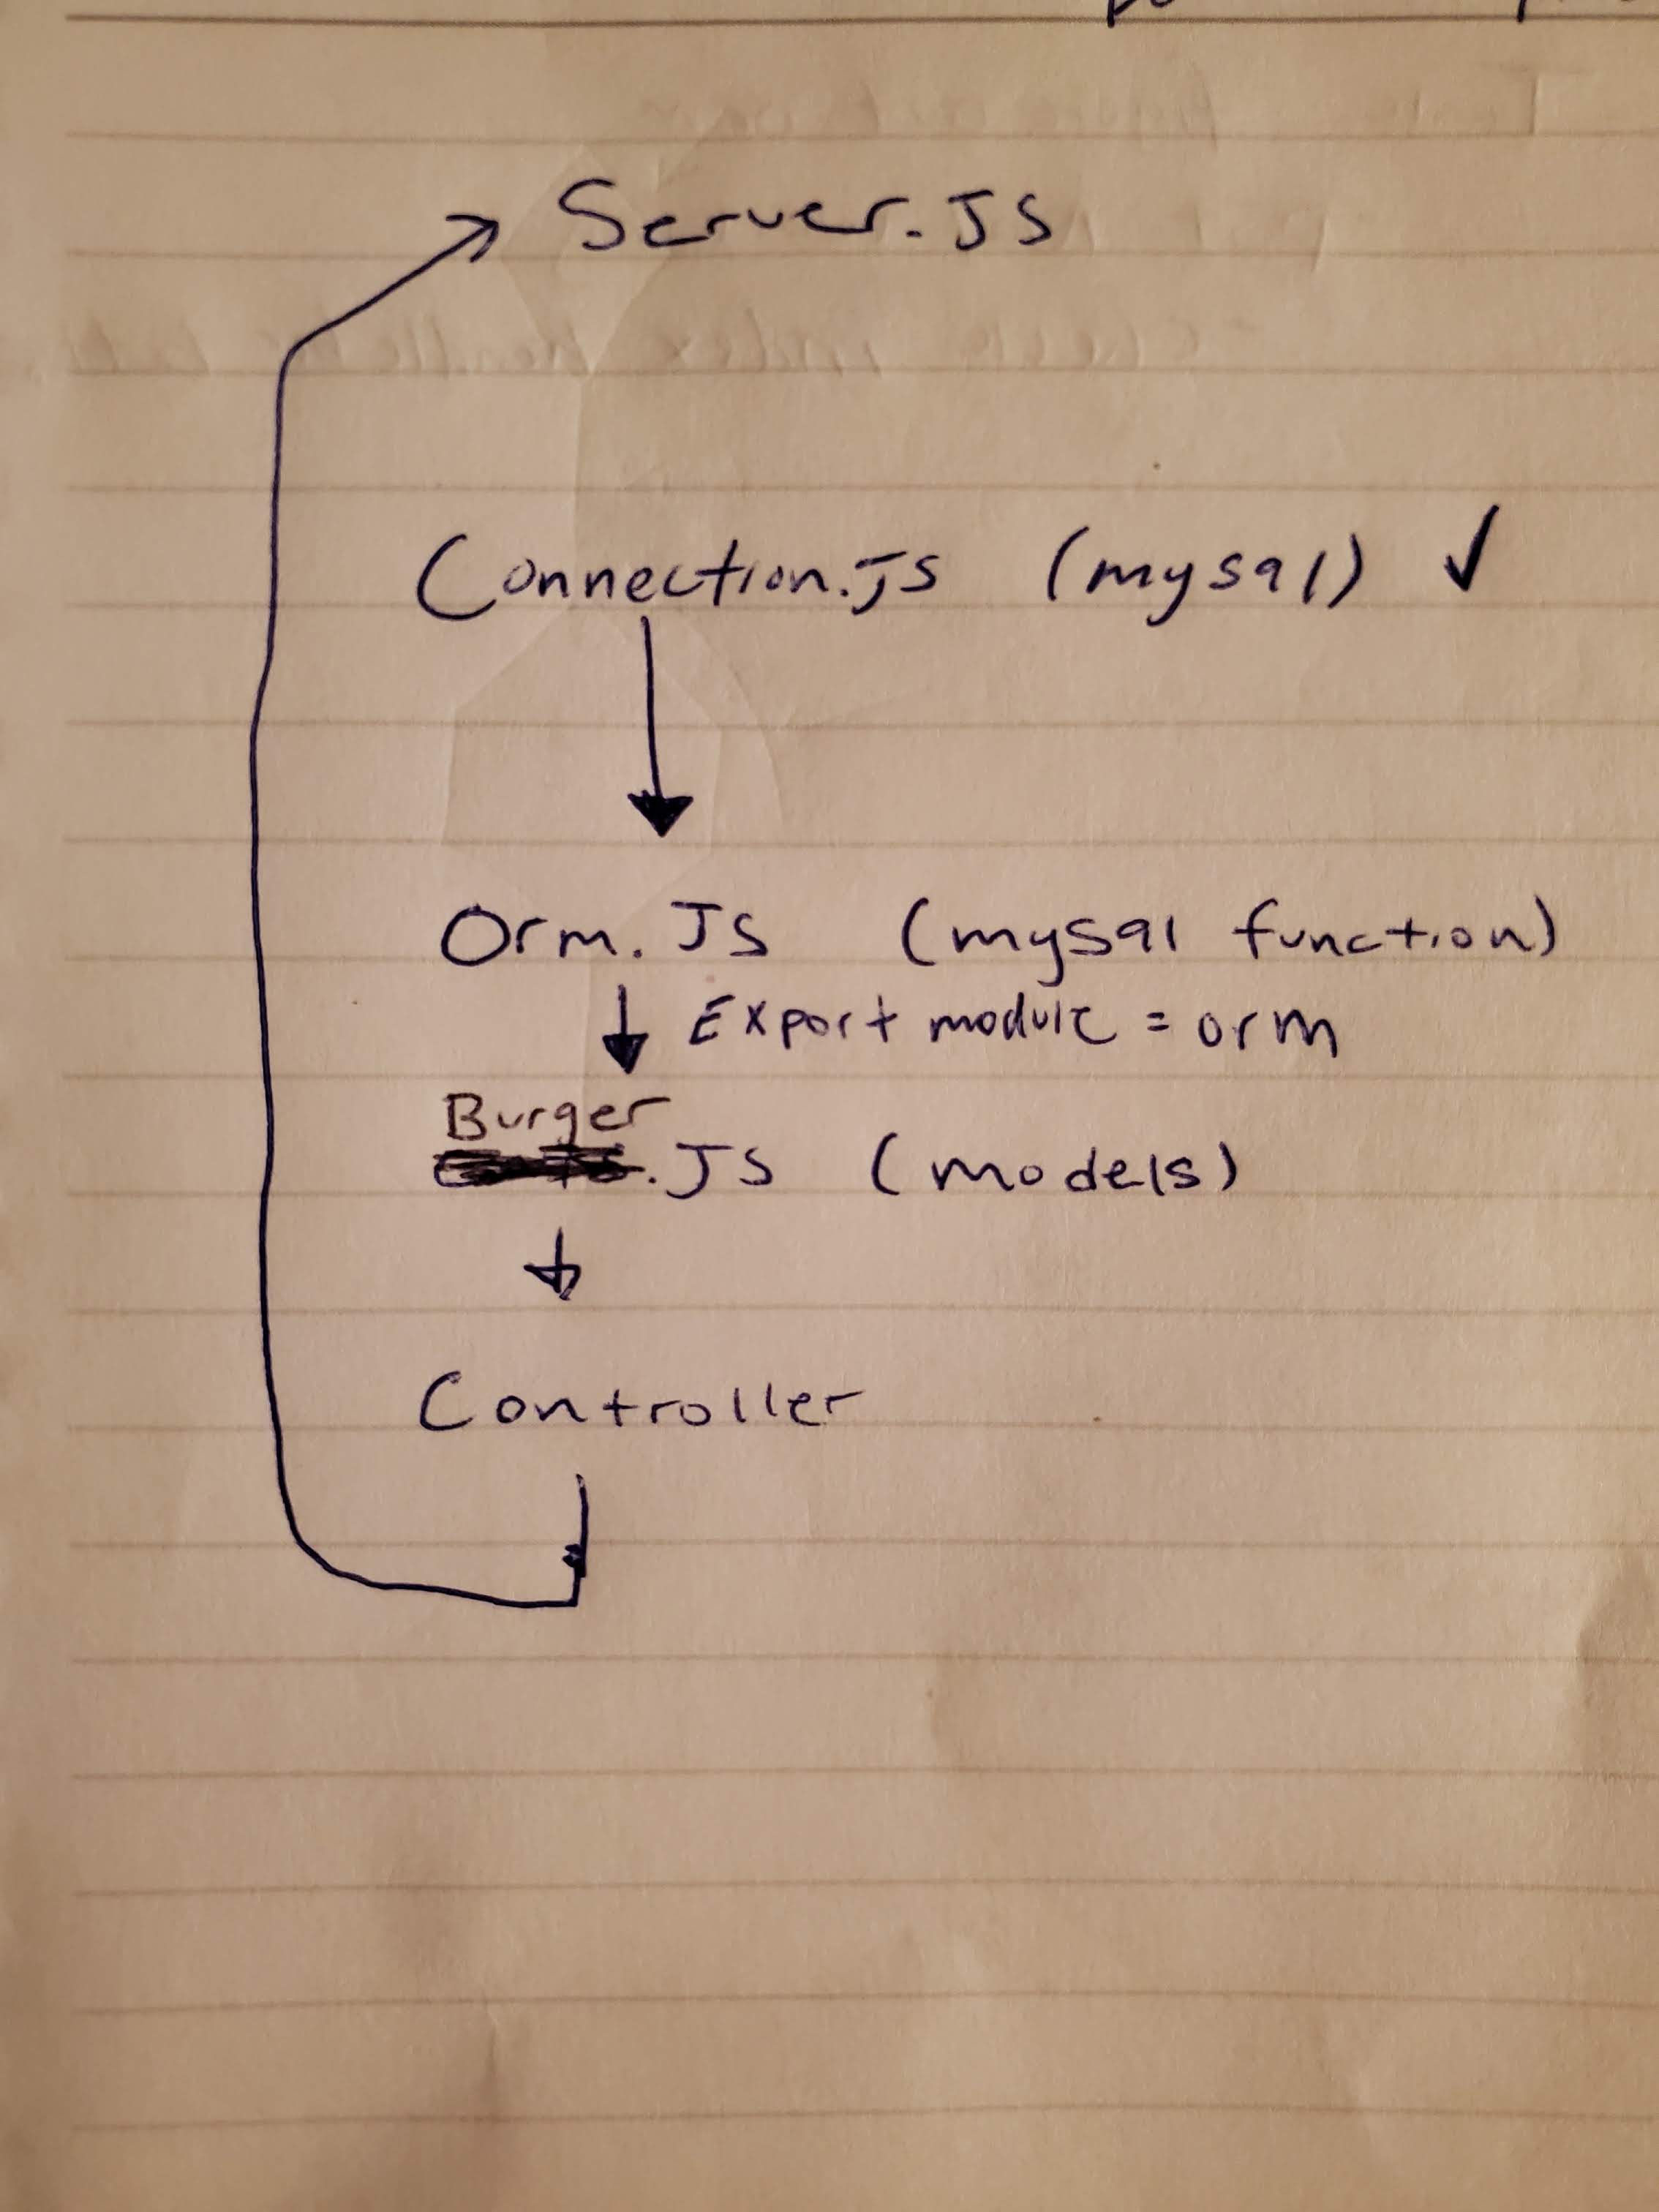 Server.JS
Connection.JS (mysql) ✓
Orm.JS (mysql function)
Export module = orm
Burger
.JS (models)
Controller